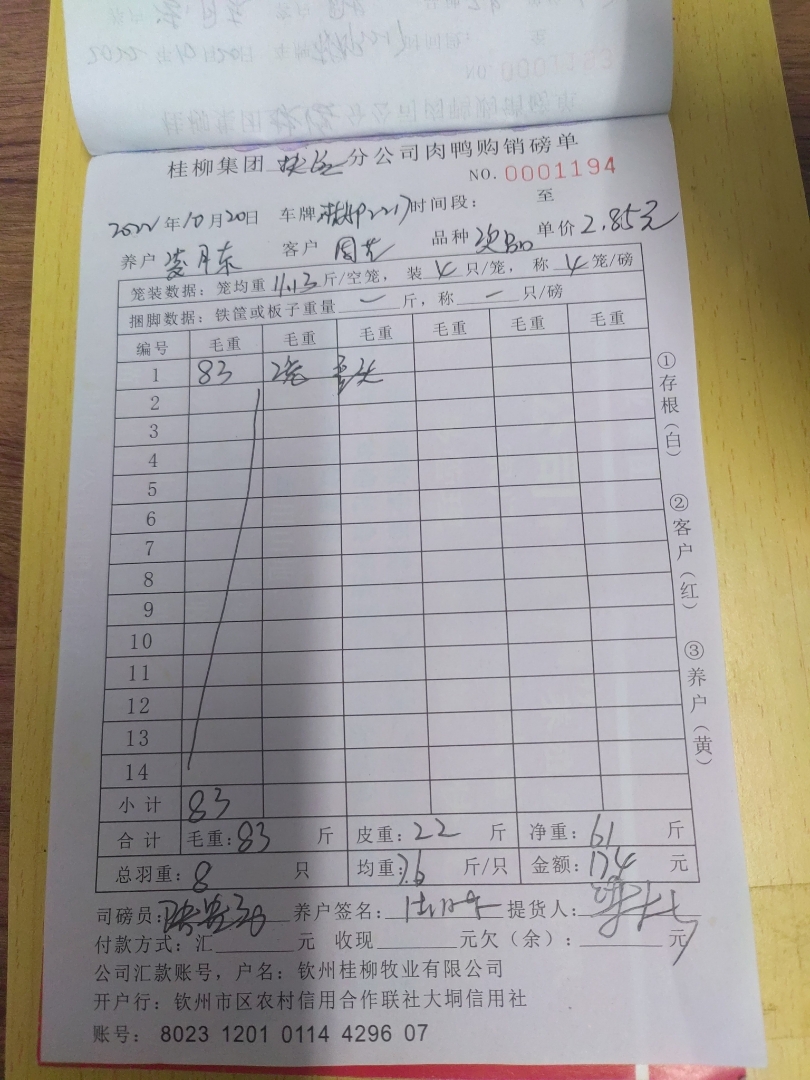 桂柳集团 分公司肉鸭购销磅单
NO. 0001194
2022年10月20日 车牌 2217 时间段: 至
养户 凌月东 客户 周 品种 次品 单价 2.85元
笼装数据：笼均重 11.13 斤/空笼， 装 4 只/笼， 称 4 笼/磅
捆脚数据：铁筐或板子重量 一 斤，称 一 只/磅
编号 毛重 毛重 毛重 毛重 毛重 毛重
1 83 2笼
2
3
4
5
6
7
8
9
10
11
12
13
14
小计 83
合计 毛重: 83 斤 皮重: 22 斤 净重: 61 斤
总羽重: 8 只 均重: 7.6 斤/只 金额: 174 元
司磅员: 养户签名: 提货人:
付款方式: 汇 元 收现 元欠（余）: 元
公司汇款账号，户名：钦州桂柳牧业有限公司
开户行：钦州市区农村信用合作联社大垌信用社
账号： 8023 1201 0114 4296 07
①存根（白）
②客户（红）
③养户（黄）